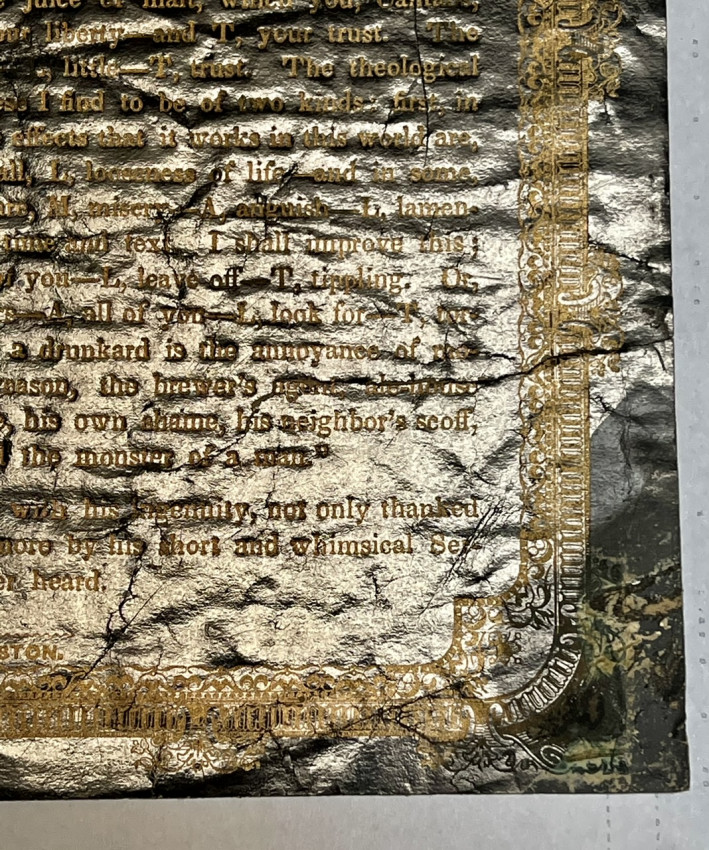 juice of malt, with u, you, Cantare,
liberty—and T, your trust. The
, little—T, trust. The theological
I find to be of two kinds: first, in
effects that it works in this world are,
L, looseness of life—and in some,
M, misery—A, anguish—L, lamen-
time and text. I shall improve this;
you—L, leave off—T, tippling. Or,
A, all of you—L, look for—T,
a drunkard is the annoyance of
the brewer's agent, ale-house
, his own shame, his neighbor's scoff,
the monster of a man."
with his ingenuity, not only thanked
more by his short and whimsical Ser-
heard.
STON.